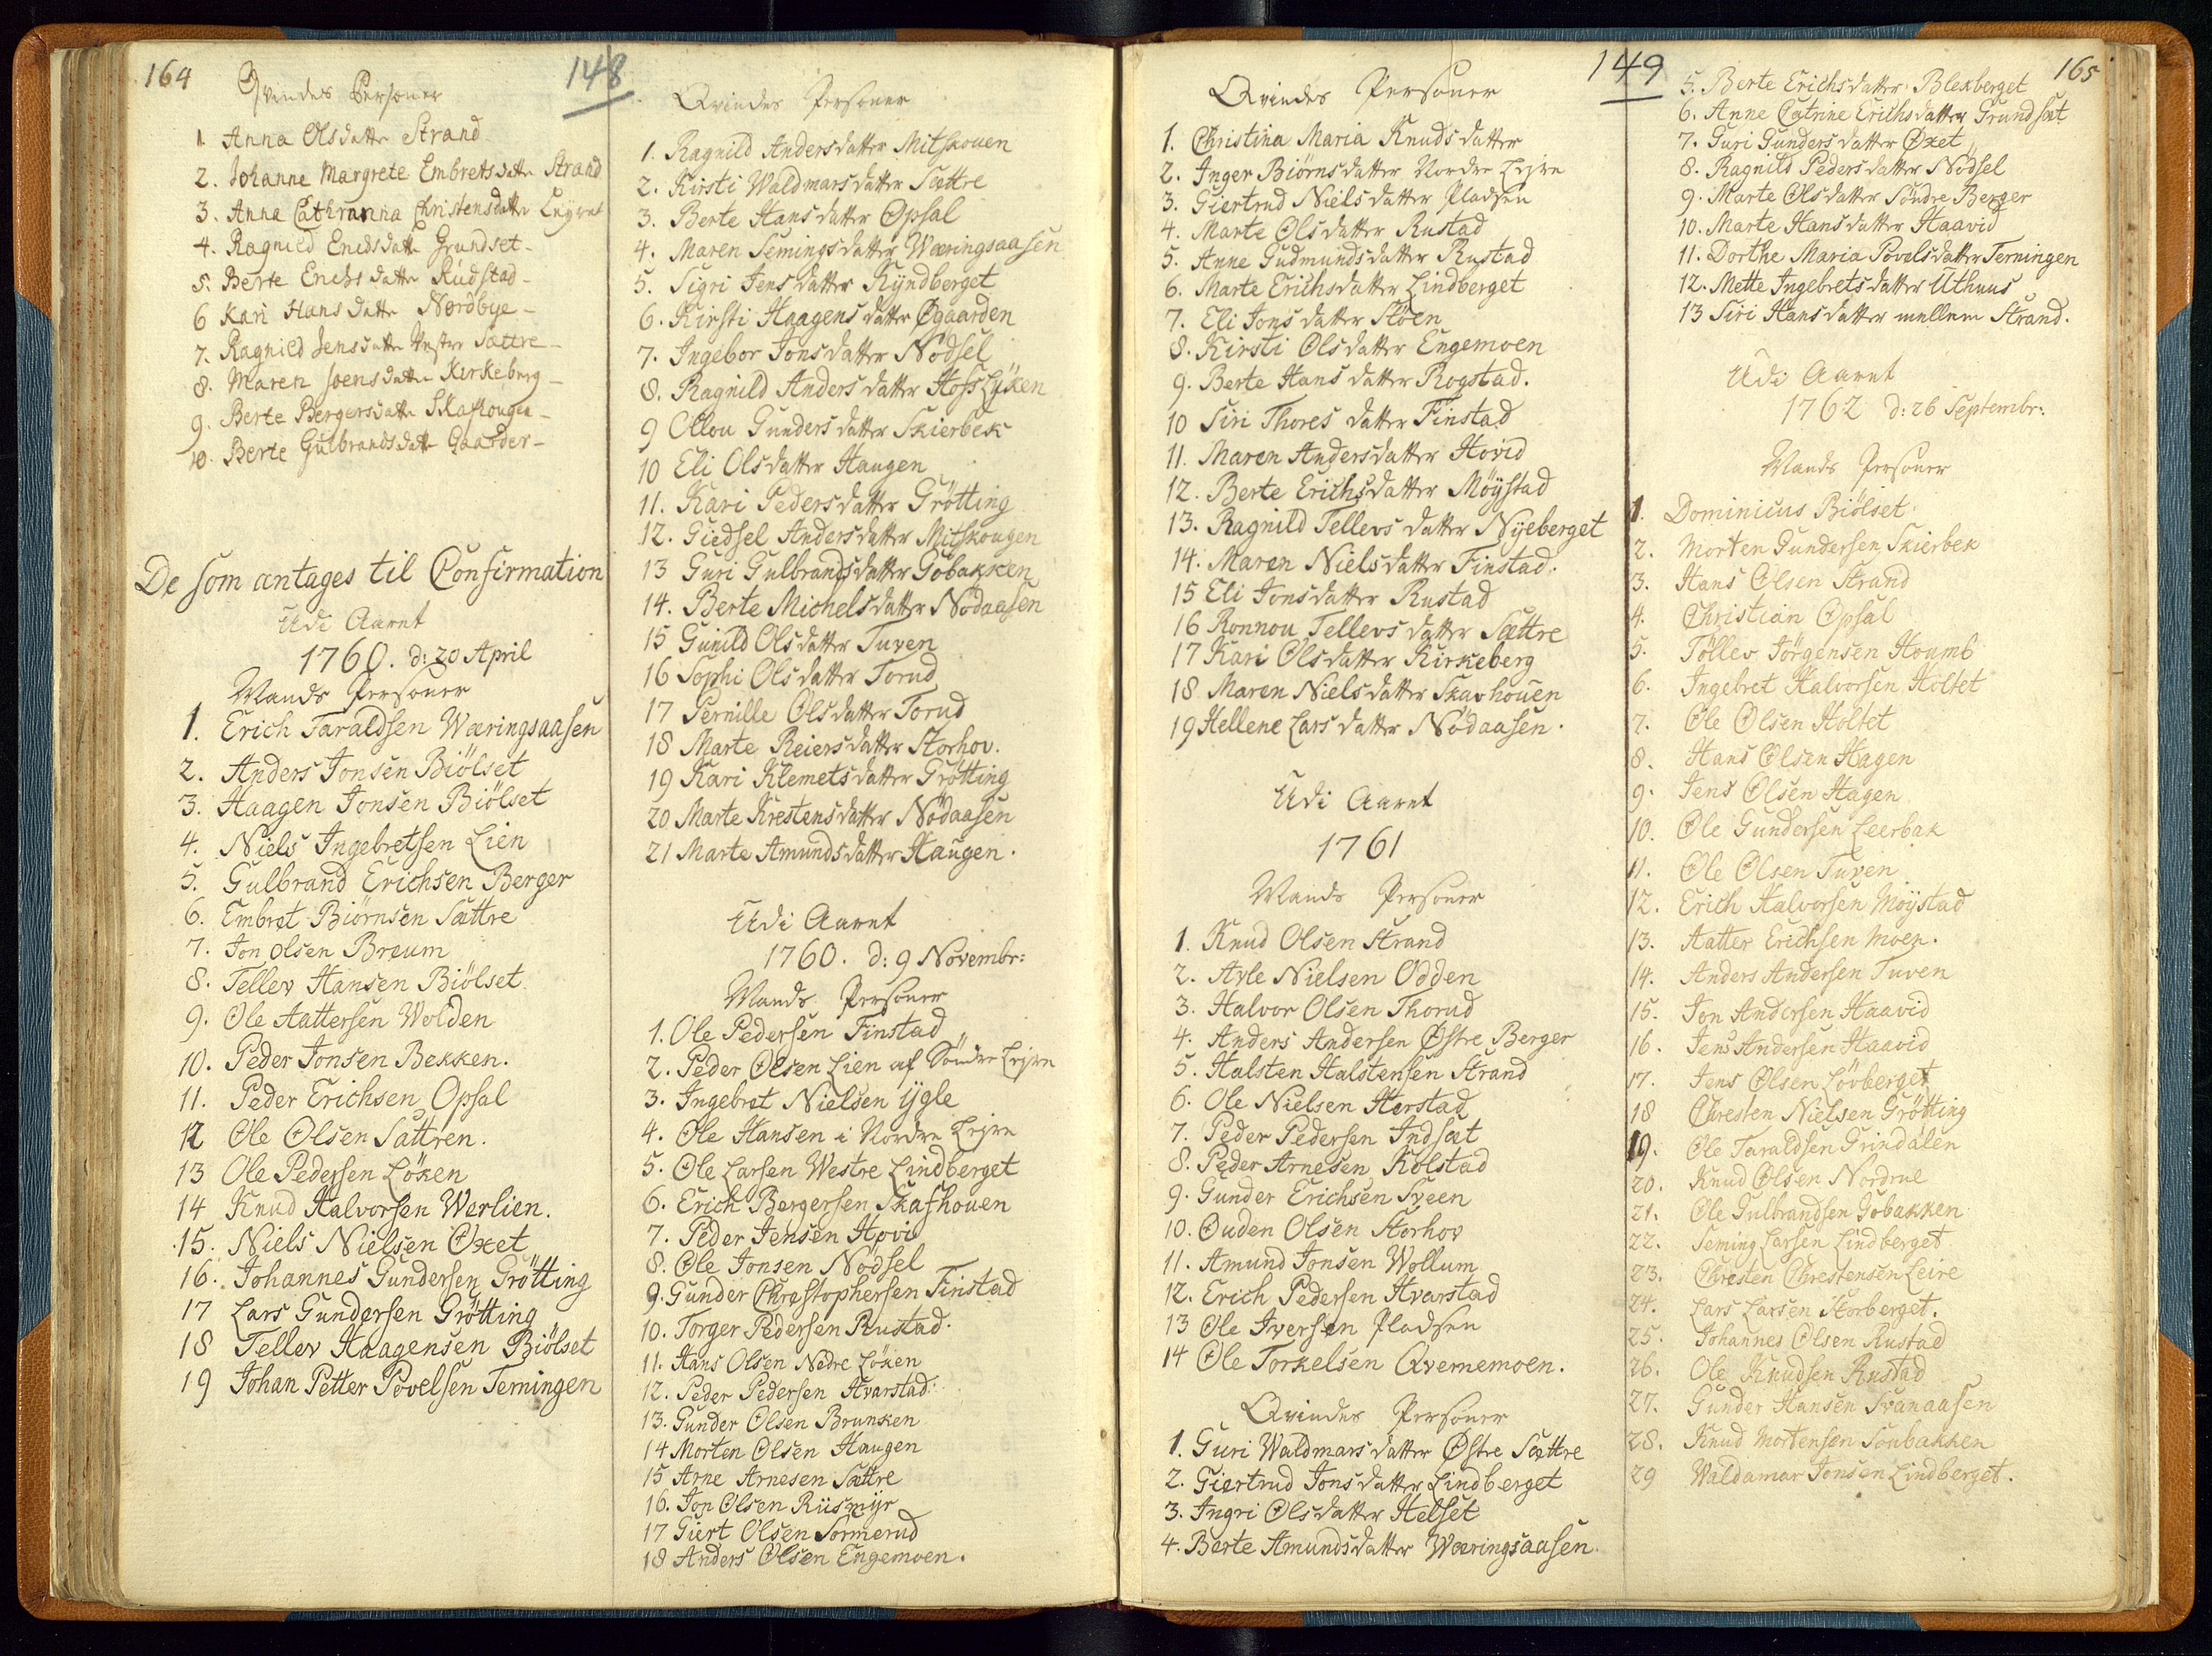 164
148
Qvindes Personer
1. Anna Olsdatter Strand
2. Johanne Margrete Embretsdatter Strand
3. Anna Cathranna Christensdatter
4. Ragnild Erichsdatter Grundset
5. Berte Erichsdatter Rudstad
6 Kari Hansdatter Nordbye
7. Ragnild Jensdatter Vestre Sættre
8. Maren Joensdatter Kirkeberg
9. Berte Bergersdatter Skafhougen
10. Berte Gulbrandsdatter Gaarder
De som antages til Confirmation
Udi Aaret
1760. d: 20 April
Mands Personer
1. Erich Taraldsen Wæringsaasen
2. Anders Jonsen Biölset
3. Haagen Jonsen Biölset
4. Niels Ingebretsen Lien
5. Gulbrand Erichsen Berger
6. Embret Biörnsen Sættre
7. Jon olsen Breum
8. Tellev Hansen Biölset
9. Ole Aattersen Wolden
10. Peder Jonsen Bekken.
11. Peder Erichsen Opsal
12 Ole Olsen Sættren.
13 Ole Pedersen Löken
14 Knud Halvorsen Werlien.
15. Niels Nielsen Øxet
16. Johannes Gundersen Grötting
17 Lars Gundersen Grötting
18 Tellev Haagensen Biölset
19 Johan Petter Povelsen Terningen
Qvindes Personer
1. Ragnild Andersdatter Mitskouen
2. Kirsti Waldmarsdatter Sættre
3. Berte Hansdatter Opsal
4. Maren Semingsdatter Wæringsaasen
5. Sigri Jensdatter Kyndberget
6. Kirsti Haagensdatter Øgaarden
7. Ingebor Jonsdatter Nödsel
8. Ragnild Andersdatter Hofslyken
9 Ollou Gundersdatter Skierbek
10 Eli Olsdatter Haugen
11. Kari Pedersdatter Grötting
12. Giedsel Andersdatter Mitskougen
13 Guri Gulbrandsdatter Gobakken
14. Berte Michelsdatter Nodaasen
15 Gunild Olsdatter Tuven
16 Sophi Olsdatter Torud
17 Pernille Olsdatter Torud
18 Marte Reiersdatter Storhov.
19 Kari Klemetsdatter Grötting
20 Marte Krestensdatter Nödaasen
21 Marte Amundsdatter Haugen.
Udi Aaret
1760. d: 9 Novembr:
Mands Personer
1. Ole Pedersen Finstad
2. Peder Olsen Lien af Söndre Leyre
3. Ingebret Nielsen ygle
4. Ole Hansen i Nordre Leyre
5. Ole Larsen Westre Lindberget
6. Erich Bergersen Skafhouen
7. Peder Jensen Hovi
8. Ole Jonsen Nödsel
9. Gunder Chrestophersen Finstad
10. Torger Pedersen Rustad.
11. Hans Olsen Nedre Löken
12. Peder Pedersen Hvarstad.
13. Gunder Olsen Brunken
14 Morten Olsen Haugen
15 Arne Arnesen Sættre
16. Jon Olsen Riismyr
17 Giert Olsen Sormerud
18 Anders Olsen Engemoen.
149
165
Qvindes Personer
1. Christina Maria Knudsdatter
2. Inger Biörnsdatter Nordre Leyre
3. Giertrud Nielsdatter Pladsen
4. Marte Olsdatter Rustad
5. Anne Gudmundsdatter Rustad
6. Marte Erichsdatter Lindberget
7. Eli Jonsdatter Stöen
8. Kirsti Olsdatter Engemoen
9. Berte Hansdatter Rogstad.
10 Siri Thoresdatter Finstad
11. Maren Andersdatter Hovid
12. Berte Erichsdatter Möystad
13. Ragnild Tellevsdatter Nyeberget
14. Maren Nielsdatter Finstad.
15 Eli Jonsdatter Rustad
16 Ronnou Tellevsdatter Sættre
17 Kari Olsdatter Kirkeberg
18 Maren Nielsdatter Skavhouen
19 Hellene Larsdatter Nödaasen.
Udi Aaret
1761
Mands Personer
1. Knud Olsen Strand
2. Avle Nielsen Odden
3. Halvor Olsen Thorud
4. Anders Andersen Østre Berger
5. Halsten Halstensen Strand
6. Ole Nielsen Herstad
7. Peder Pedersen Indsæt
8. Peder Arnesen Kolstad
9. Gunder Erichsen Sveen
10. Ouden Olsen Storhov
11. Amund Jonsen Wollum
12. Erich Pedersen Hvarstad
13 Ole Iversen Pladsen
14 Ole Torkelsen Qvernemoen.
Qvindes Personer
1. Guri Waldmarsdatter Østre Sættre
2. Giertrud Jonsdatter Lindberget
3. Ingri Olsdatter Helset
4. Berte Amundsdatter Wæringsaasen.
5. Berte Erichsdatter Blekberget
6. Anne Catrine Erichsdatter Grundsæt
7. Guri Gundersdatter Øxet
8. Ragnild Pedersdatter Nödsel
9. Marte Olsdatter Söndre Berger
10. Marte Hansdatter Haavid
11. Dorthe Maria Povelsdatter Terningen
12. Mette Ingebretsdatter Uthuus
13 Siri Hansdatter mellem Strand.
Udi Aaret
1762 d: 26 Septembr:
Mands Personer
1. Dominicus Biölset
2. Morten Gundersen Skierbek
3. Hans Olsen Strand
4. Christian Opsal
5. Töllev Jörgensen Houmb
6. Ingebret Halvorsen Holtet
7. Ole Olsen Holtet
8. Hans Olsen Hagen
9. Jens Olsen Hagen
10. Ole Gundersen Leerbak
11. Ole Olsen Tuven
12. Erich Halvorsen Möystad
13. Aatter Erichsen Moen.
14. Anders Andersen Tuven
15. Jon Andersen Haavid
16. Jens Andersen Haavid
17. Jens Olsen Lövberget
18 Chresten Nielsen Grötting
19. Ole Taraldsen Grindalen
20. Knud Olsen Nordrue
21. Ole Gulbrandsen Gobakken
22. Seming Larsen Lindberget
23. Chresten Chrestensen Leire
24. Lars Larsen Storberget.
25. Johannes Olsen Rustad
26. Ole Knudsen Rustad
27. Gunder Hansen Svanaasen
28. Knud Mortensen Soubakken
29 Waldamar Jonsen Lindberget.